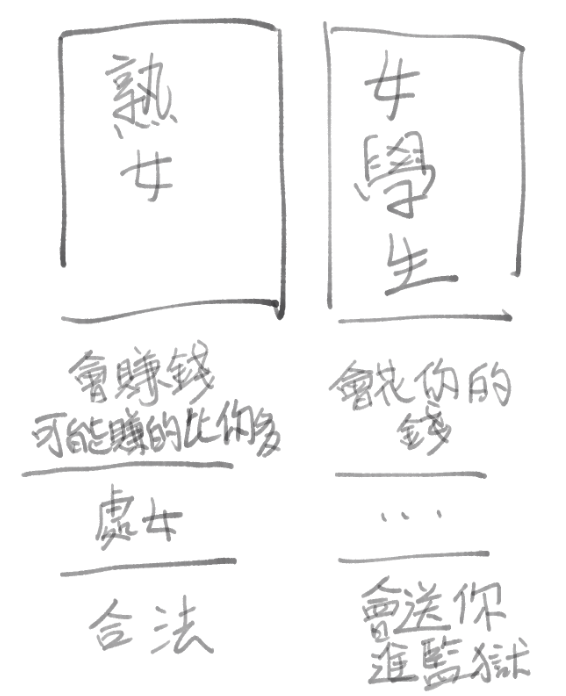 熟女
女學生
會賺錢
可能賺的比你多
會花你的
錢
處女
...
合法
會送你
進監獄